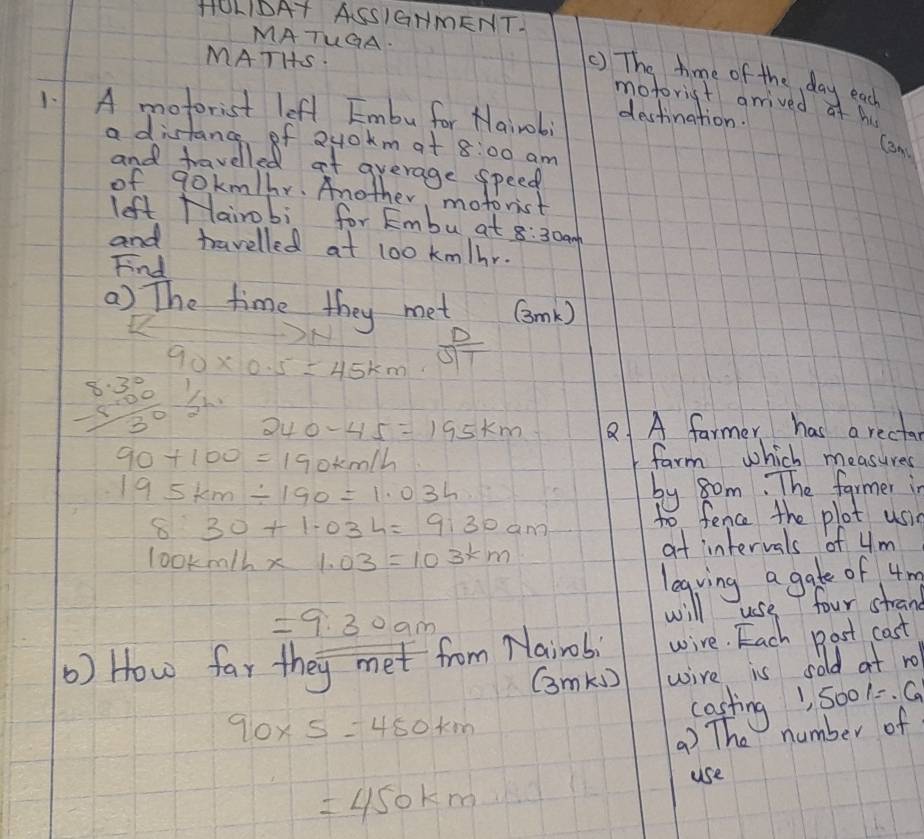 HOLIDAY ASSIGNMENT.
MATUGA.
MATHS.
1. A motorist left Embu for Nairobi
a distance of 240km at 8:00 am
and travelled at average speed
of 90km/hr. Another motorist
left Nairobi for Embu at 8:30am
and travelled at 100 km/hr.
Find
a) The time they met (3mk)
E N
90 x 0.5 = 45km. D
S T
8.30
8.00 1/2 h.
30
240 - 45 = 195km
90 + 100 = 190km/h
195km ÷ 190 = 1.03h
8 30 + 1.03h = 9:30 am
100km/h x 1.03 = 103km
= 9:30am
b) How far they met from Nairobi
(3mks)
90 x 5 = 450km
= 450km
c) The time of the day each
motorist arrived at his
destination.
(3m
2. A farmer has a rectan
farm which measures
by 80m. The farmer in
to fence the plot usin
at intervals of 4m
leaving a gate of 4m
will use four strand
wire. Each post cost
wire is sold at rol
costing 1,500/=. Ca
a) The number of
use